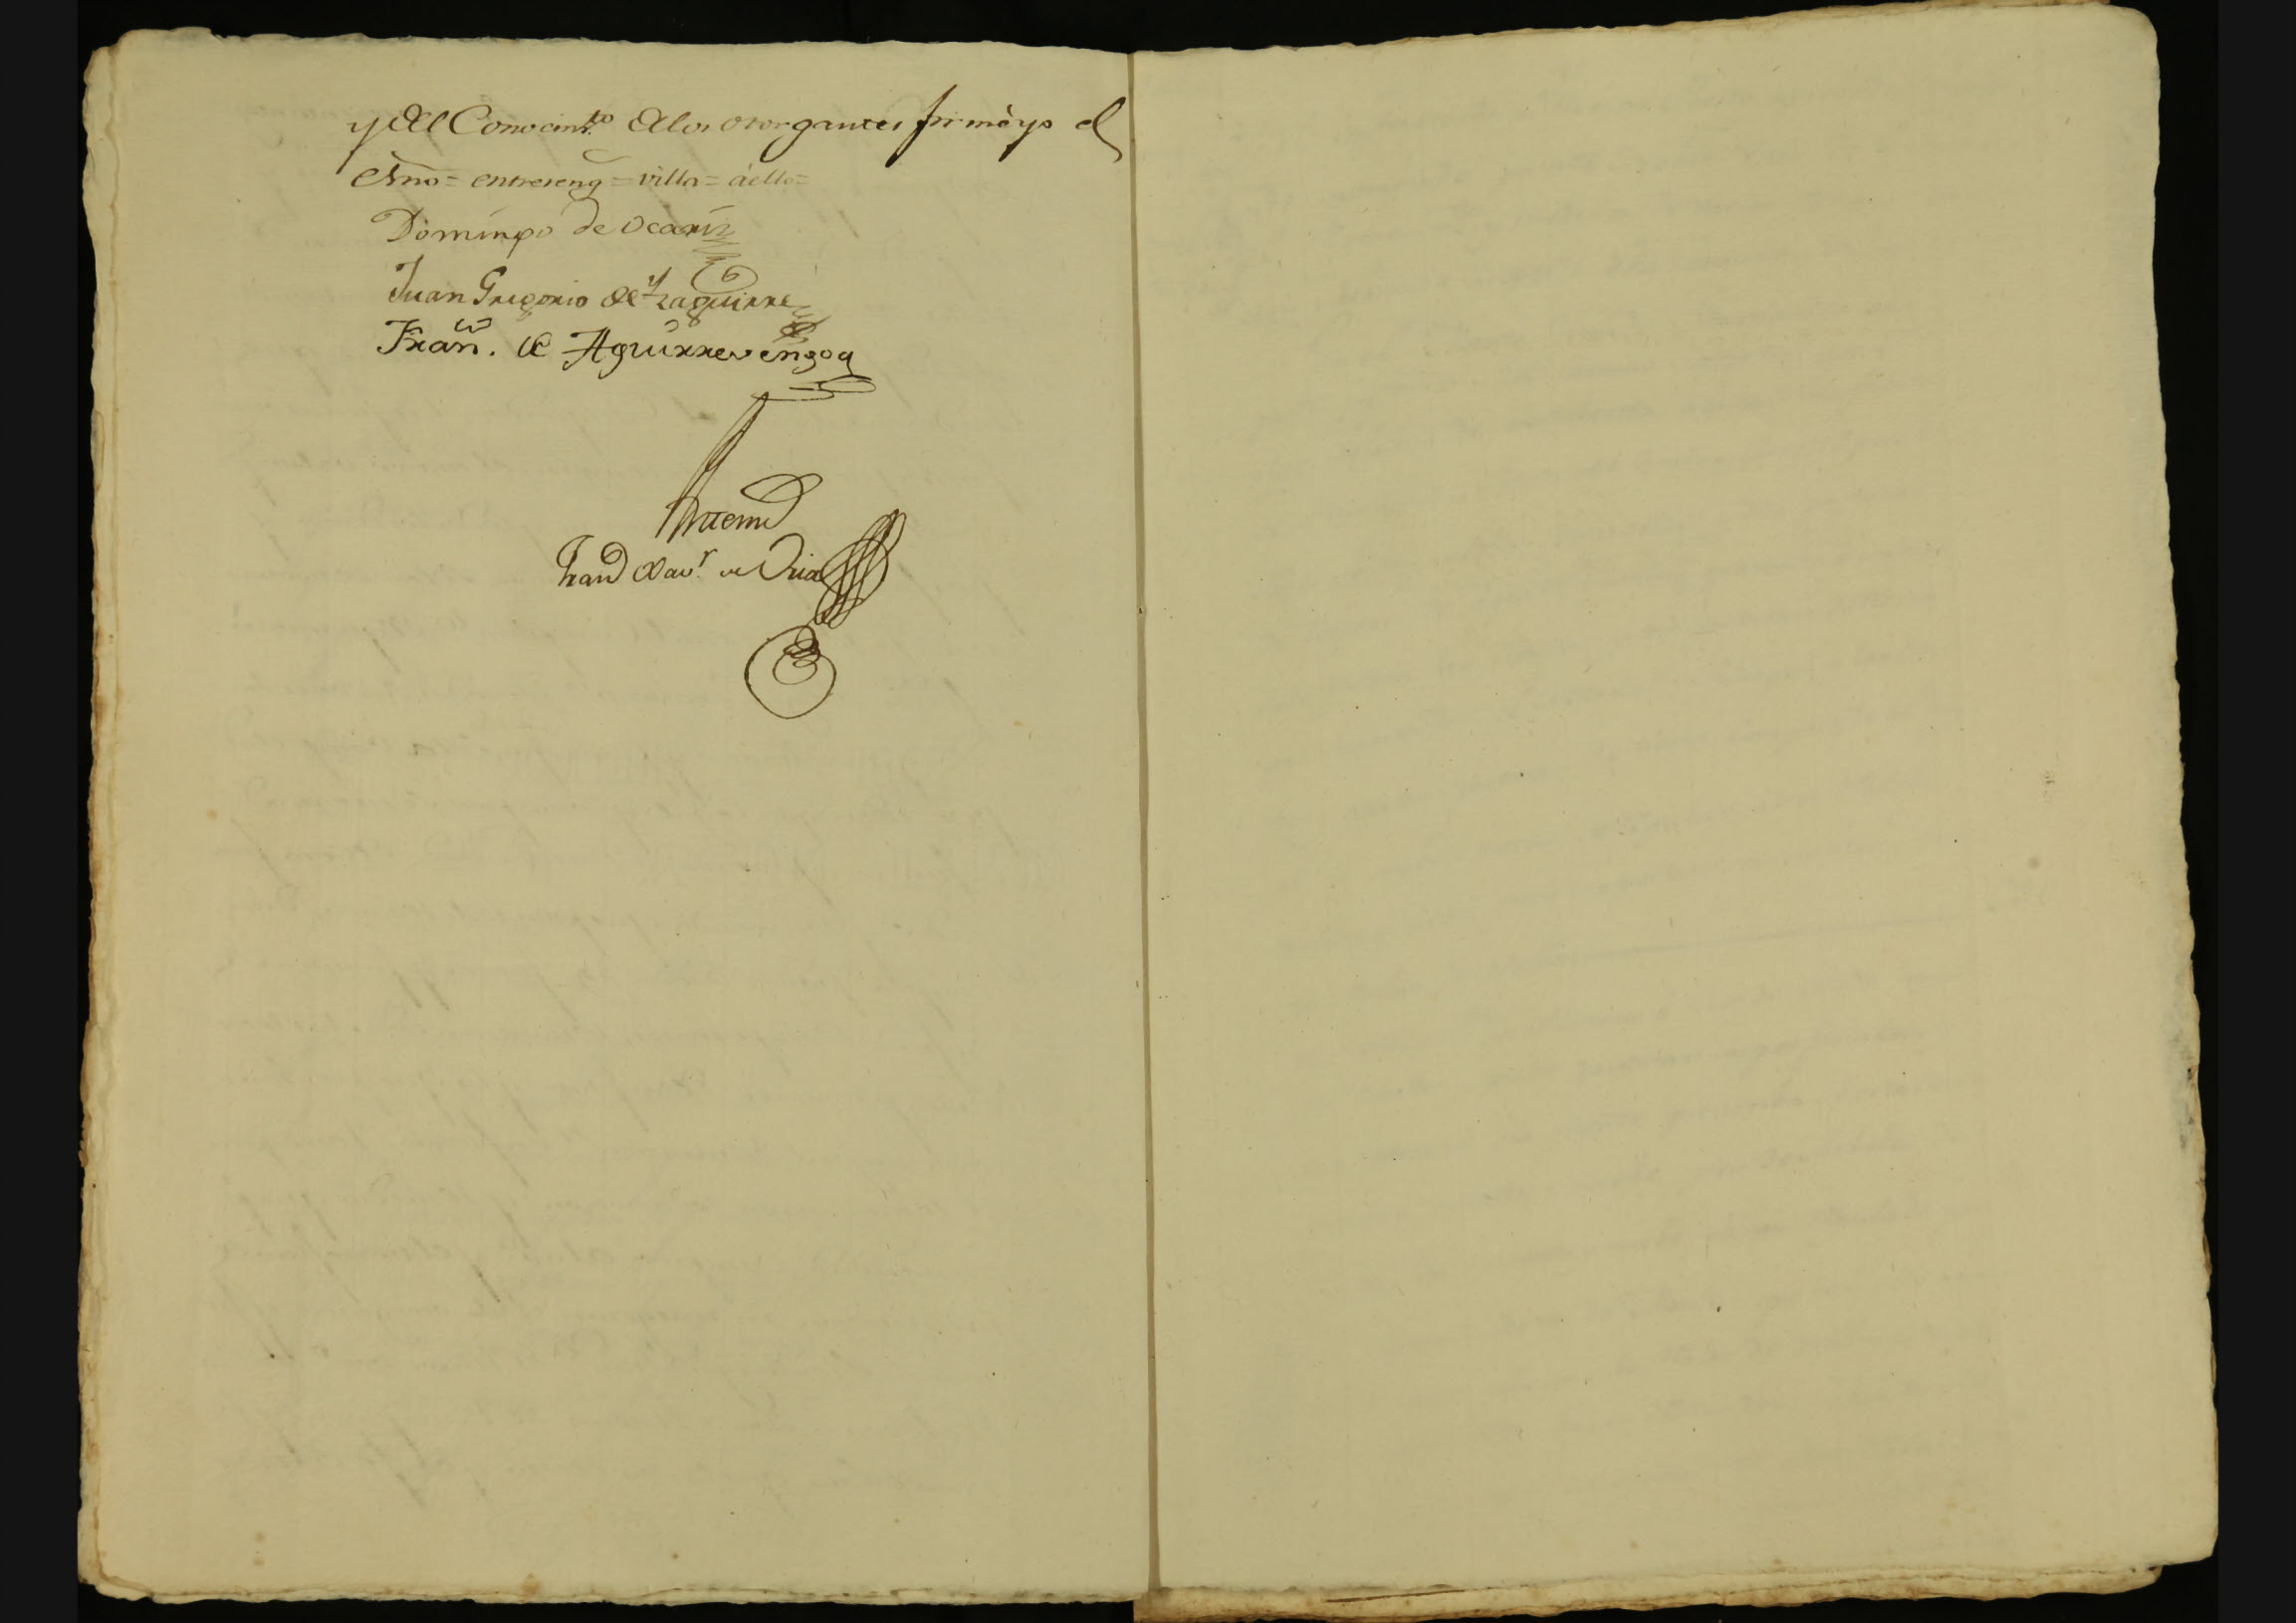 y del Conocimto. de los otorgantes firmè yo el
esno = entrereng = villa = áello =
Domingo de Ocariz
Juan Gregorio de Yzaguirre
Franco. de Aguirrevengoa
Antemi
Frano Xavr. de Oria